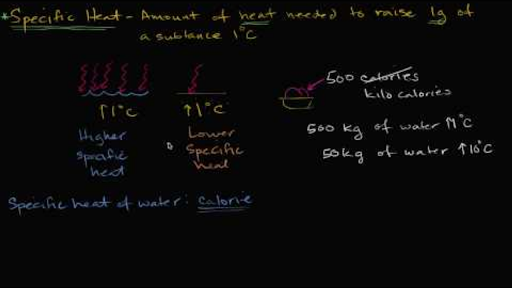 *Specific Heat - Amount of heat needed to raise 1g of
a substance 1°C
500 calories
kilo calories
↑1°C
↑1°C
Higher
specific
heat
Lower
Specific
heat
500 kg of water ↑1°C
50kg of water ↑10°C
Specific heat of water: calorie